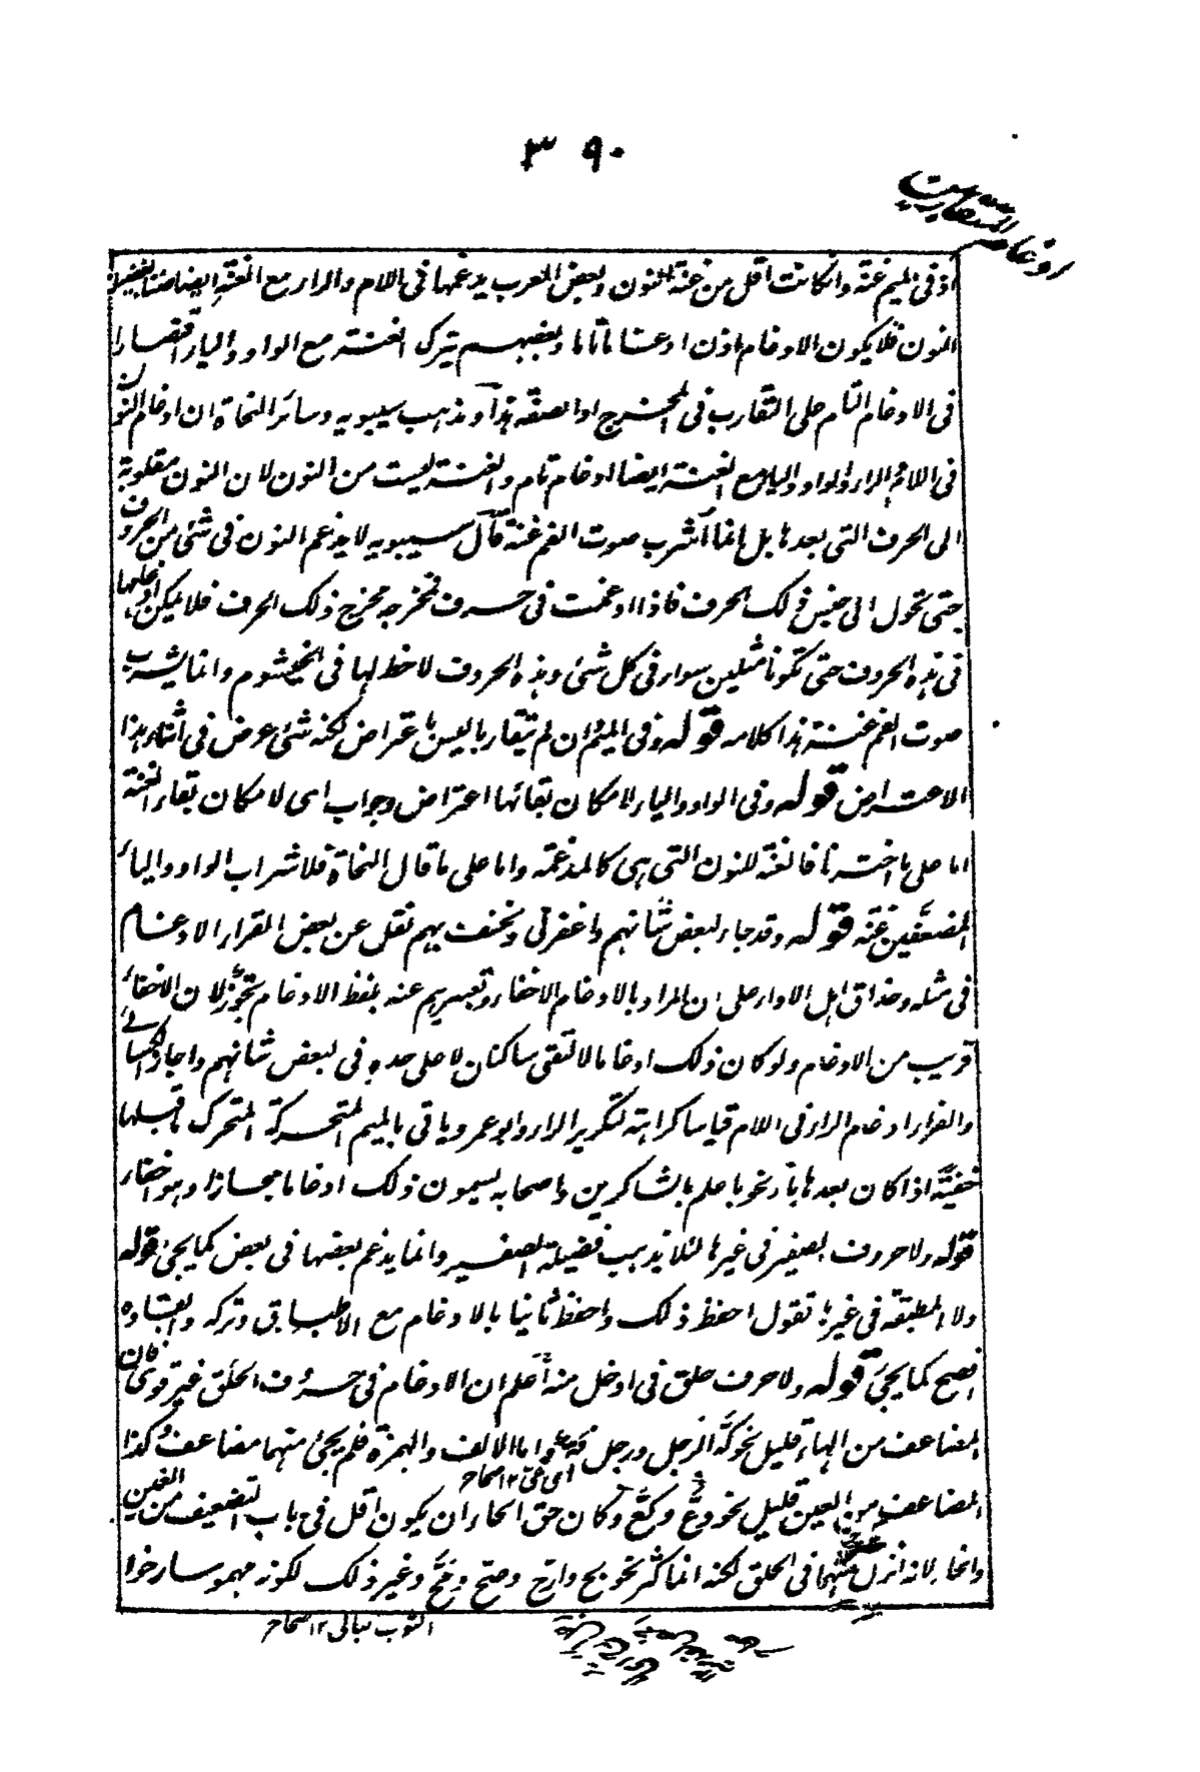 ٣٩٠
ادغام المتقاربين
اذ فى الميم غنة وانكانت اقل من غنة النون وبعض العرب يدغمها فى اللام والراء مع الغنة ايضا ضنا بفضيلة
النون فلا يكون الادغام اذن ادغاما تاما وبعضهم يترك الغنة مع الواو والياء اقتصارا
فى الادغام التام على التقارب فى المخرج او الصفة هذا ومذهب سيبويه وسائر النحاة ان ادغام النون
فى اللام والراء والواو والياء مع الغنة ايضا ادغام تام والغنة ليست من النون لان النون مقلوبة
الى الحرف التى بعدها بل انما اشرب صوت الفم غنة قال سيبويه لا يدغم النون فى شئ من الحروف
حتى تحول الى جنس ذلك الحرف فاذا ادغمت فى حرف فمخرجه مخرج ذلك الحرف فلا يمكن ادغامها
فى هذه الحروف حتى تكونا مثلين سواء فى كل شئ وهذه الحروف لا حظ لها فى الخيشوم وانما يشرب
صوت الفم غنة هذا كلامه قوله وفى الميم وان لم يتقاربا ليس باعتراض لكنه شئ عرض فى اثناء هذا
الاعتراض قوله وفى الواو والياء لامكان بقائها اعتراض وجواب اى لامكان بقاء الغنة
اما على ما اخترنا فالغنة للنون التى هى كالمدغمة واما على ما قال النحاة فلاشراب الواو والياء
المضعفين غنة قوله وقد جاء لبعض شانهم واغفر لى ونخسف بهم نقل عن بعض القراء الادغام
فى مثله وحذاق اهل الاداء على ان المراد بالادغام الاخفاء وتعبيرهم عنه بلفظ الادغام تجوز لان الاخفاء
قريب من الادغام ولو كان ذلك ادغاما لالتقى ساكنان لا على حده فى لبعض شانهم واجاز الكسائى
والفراء ادغام الراء فى اللام قياسا كراهة لتكرير الراء وابو عمرو ياتى بالميم المتحركة المتحرك ما قبلها
خفية اذا كان بعدها باء نحو باعلم بالشاكرين واصحابه يسمون ذلك ادغاما مجازا وهو اخفاء
قوله ولا حروف الصفير فى غيرها لئلا يذهب فضيلة الصفير وانما يدغم بعضها فى بعض كما يجئ قوله
ولا المطبقة فى غيرها تقول احفظ ذلك واحفظ ثانيا بالادغام مع الاطباق وتركه وابقاؤه
افصح كما يجئ قوله ولا حرف حلق فى ادخل منه اعلم ان الادغام فى حروف الحلق غير قوى فان
المضاعف من الهاء قليل نحو كه الرجل ورجل فه واما الالف والهمزة فلم يجئ منهما مضاعف وكذا
اى عى ١٢ صحاح
المضاعف من العين قليل نحو دع وكع وكان حق الحاء ان يكون اقل فى باب التضعيف من الغين
والخاء لانه انزل منهما فى الحلق لكنه انما كثر نحو بح واح وصح وفح وغير ذلك لكونه مهموسا رخوا
الثوب يبالى ١٢ صحاح